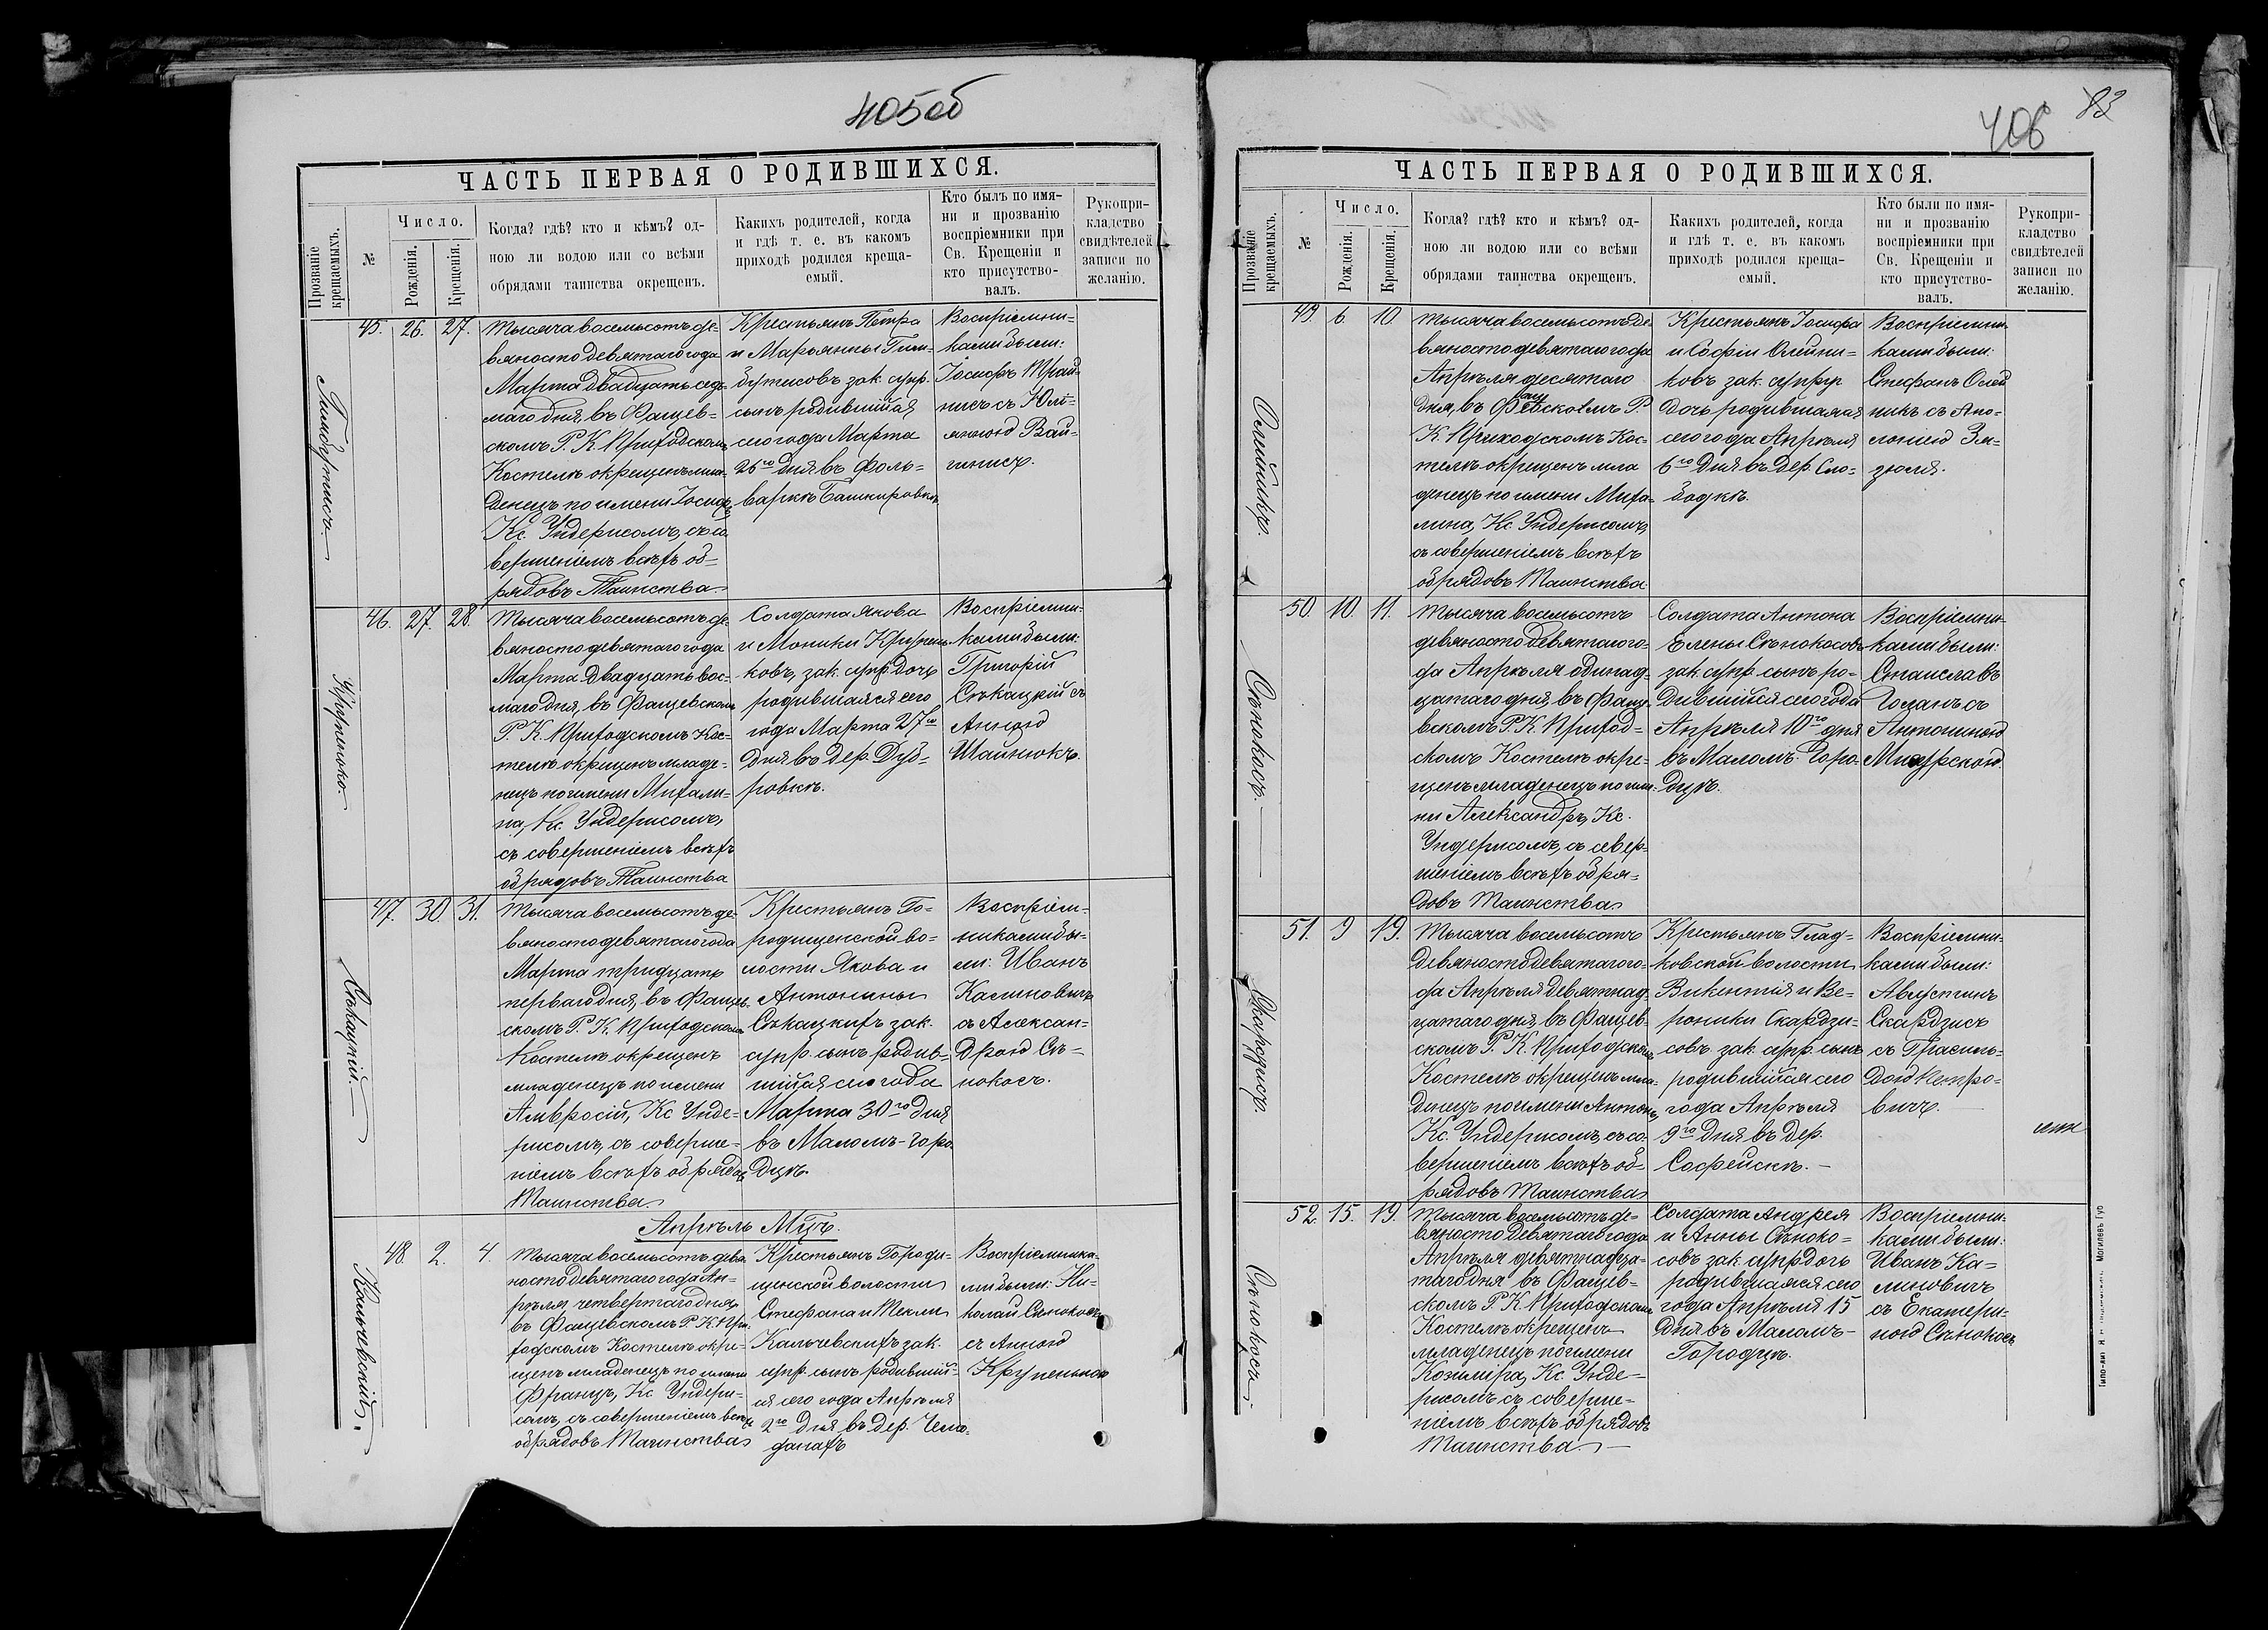 405 об
ЧАСТЬ ПЕРВАЯ О РОДИВШИХСЯ.
Прозваніе крещаемыхъ.
№
Число.
Рожденія.
Крещенія.
Когда? гдѣ? кто и кѣмъ? од-
ною ли водою или со всѣми
обрядами таинства окрещенъ.
Какихъ родителей, когда
и гдѣ т. е. въ какомъ
приходѣ родился креща-
емый.
Кто былъ по имя-
ни и прозванію
воспріемники при
Св. Крещеніи и
кто присутство-
валъ.
Рукопри-
кладство
свидѣтелей
записи по
желанію.
Гимбутисъ.
45. 26. 27.
Тысяча восемьсотъ де-
вяносто девятаго года
Марта двадцать седь-
маго дня, въ Фащев-
скомъ Р. К. Приходскомъ
Костелѣ окрещенъ мла-
денецъ по имени Іосифъ,
Кс. Ундерисомъ, съ со-
вершеніемъ всѣхъ об-
рядовъ Таинства
Крестьянъ Петра
и Марьянны Гим-
бутисовъ зак. супр.
сынъ родившійся
сего года Марта
26го дня въ Фоль-
варкѣ Башкировкѣ
Воспріемни-
ками были:
Іосифъ Трай-
нисъ съ Юлі-
янною Вай-
гинисъ.
Крупенько.
46. 27. 28
Тысяча восемьсотъ де-
вяносто девятаго года
Марта двадцать вос-
маго дня, въ Фащевскомъ
Р. К. Приходскомъ Кос-
телѣ окрещенъ младе-
нецъ по имени Михали-
на, Кс. Ундерисомъ,
съ совершеніемъ всѣхъ
обрядовъ Таинства
Солдата Якова
и Моники Крупень-
ковъ, зак. супр. дочь
родившаяся сего
года Марта 27го
дня въ дер. Дуб-
ровкѣ.
Воспріемни-
ками были:
Григорій
Сѣкацкій съ
Анною
Шайнюкъ.
Сѣкацкій.
47. 30 31.
Тысяча восемьсотъ де-
вяносто девятаго года
Марта тридцать
перваго дня, въ Фащев-
скомъ Р. К. Приходскомъ
Костелѣ окрещенъ
младенецъ по имени
Амвросій, Кс Унде-
рисомъ, съ соверше-
ніемъ всѣхъ обрядовъ
Таинства
Крестьянъ Го-
родищенской во-
лости Якова и
Антонины
Сѣкацкихъ зак.
супр. сынъ родив-
шійся сего года
Марта 30го дня
въ Маломъ-Горо
дцѣ.
Воспріем-
никами бы-
ли: Иванъ
Калиновичъ
съ Алексан-
дрою Сѣ-
нокосъ.
Апрѣль Мцъ.
Кальчевскій.
48. 2. 4.
Тысяча восемьсотъ девя-
носто девятаго года Ап-
рѣля четвертаго дня,
въ Фащевскомъ Р. К. При-
ходскомъ Костелѣ окре-
щенъ младенецъ по имени
Францъ, Кс. Ундери-
сомъ, съ совершеніемъ всѣхъ
обрядовъ Таинства
Крестьянъ Городи-
щенской волости
Стефана и Теклы
Кальчевскихъ зак.
супр. сынъ родивший-
ся сего года Апрѣля
2го дня въ дер. Чемо-
данахъ
Воспріемника-
ми были: Ни-
колай Сѣнокосъ
съ Анною
Крупенькою
83
406
ЧАСТЬ ПЕРВАЯ О РОДИВШИХСЯ.
Прозваніе крещаемыхъ.
№
Число.
Рожденія.
Крещенія.
Когда? гдѣ? кто и кѣмъ? од-
ною ли водою или со всѣми
обрядами таинства окрещенъ.
Какихъ родителей, когда
и гдѣ т. е. въ какомъ
приходѣ родился креща-
емый.
Кто были по имя-
ни и прозванію
воспріемники при
Св. Крещеніи и
кто присутство-
валъ.
Рукопри-
кладство
свидѣтелей
записи по
желанію.
Олейникъ.
49. 6. 10
Тысяча восемьсотъ де-
вяносто девятаго года
Апрѣля десятаго
дня, въ Фащевскомъ Р.
К. Приходскомъ Кос-
телѣ окрещенъ мла
денецъ по имени Миха-
лина, Кс. Ундерисомъ,
съ совершеніемъ всѣхъ
обрядовъ Таинства
Крестьянъ Іосифа
и Софіи Олейни-
ковъ зак. супр
дочь родившаяся
сего года Апрѣля
6го дня въ дер. Сло-
бодкѣ.
Воспріемни-
ками были:
Стефанъ Олей
никъ съ Апо-
лоніею
Сѣнокосъ.
50. 10. 11.
Тысяча восемьсотъ
девяносто девятаго го-
да Апрѣля одинад-
цатаго дня, въ Фаще-
вскомъ Р. К. Приход-
скомъ Костелѣ окре-
щенъ младенецъ по име-
ни Александръ, Кс.
Ундерисомъ, съ совер-
шеніемъ всѣхъ обря-
довъ Таинства
Солдата Антона
Елены Сѣнокосовъ
зак. супр. сынъ ро-
дившійся сего года
Апрѣля 10го дня
въ Маломъ-Горо-
дцѣ.
Воспріемни-
ками были:
Станиславъ
съ
Антониною
Скардзисъ.
51. 9 19.
Тысяча восемьсотъ
девяносто девятаго го-
да Апрѣля девятнад-
цатаго дня, въ Фащев-
скомъ Р. К. Приходскомъ
Костелѣ окрещенъ мла-
денецъ по имени Антонъ,
Кс. Ундерисомъ, съ со-
вершеніемъ всѣхъ об-
рядовъ Таинства
Крестьянъ Глад-
ковской волости
Викентія и Ве-
роники Скардзи-
совъ зак. супр. сынъ
родившійся сего
года Апрѣля
9го дня въ дер.
Софейскѣ.-
Воспріемни-
ками были:
Августинъ
Скардзисъ
съ Грасиль-
дою Петро-
вичъ.
Сѣнокосъ.
52. 15. 19.
Тысяча восемьсотъ де-
вяносто девятаго года
Апрѣля девятнадца-
таго дня въ Фащев-
скомъ Р. К. Приходскомъ
Костелѣ окрещенъ
младенецъ по имени
Козиміра, Кс. Унде-
рисомъ съ соверше-
ніемъ всѣхъ обрядовъ
Таинства.-
Солдата Андрея
и Анны Сѣноко-
совъ зак. супр дочь
родившаяся сего
года Апрѣля 15
дня въ Маломъ-
Городцѣ.
Воспріемни-
ками были:
Иванъ Ка-
линовичъ
съ Екатери-
ною Сѣнокосъ